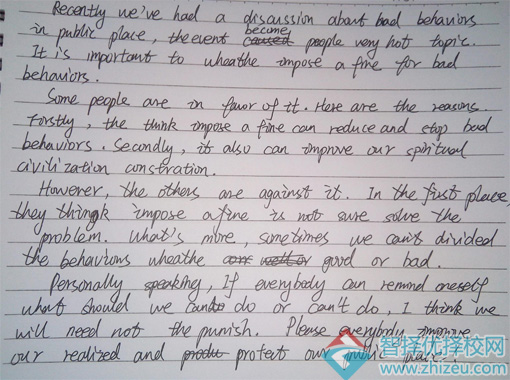 Recently we've had a discussion about bad behaviors
in public place, the event become people very hot topic.
It is important to wheathe impose a fine for bad
behaviors.
Some people are in favor of it. Here are the reasons.
Forstly, the think impose a fine can reduce and stop bad
behaviors. Secondly, it also can improve our spiritual
civilization constration.
However, the others are against it. In the first place,
they thingk impose a fine is not sure solve the
problem. What's more, sometimes we can't divided
the behaviors wheathe good or bad.
Personally speaking, If everybody can remind oneself
what should we do or can't do, I think we
will need not the punish. Please everybody improve
our realized and protect our public place.
智择优择校网
www.zhizeu.com